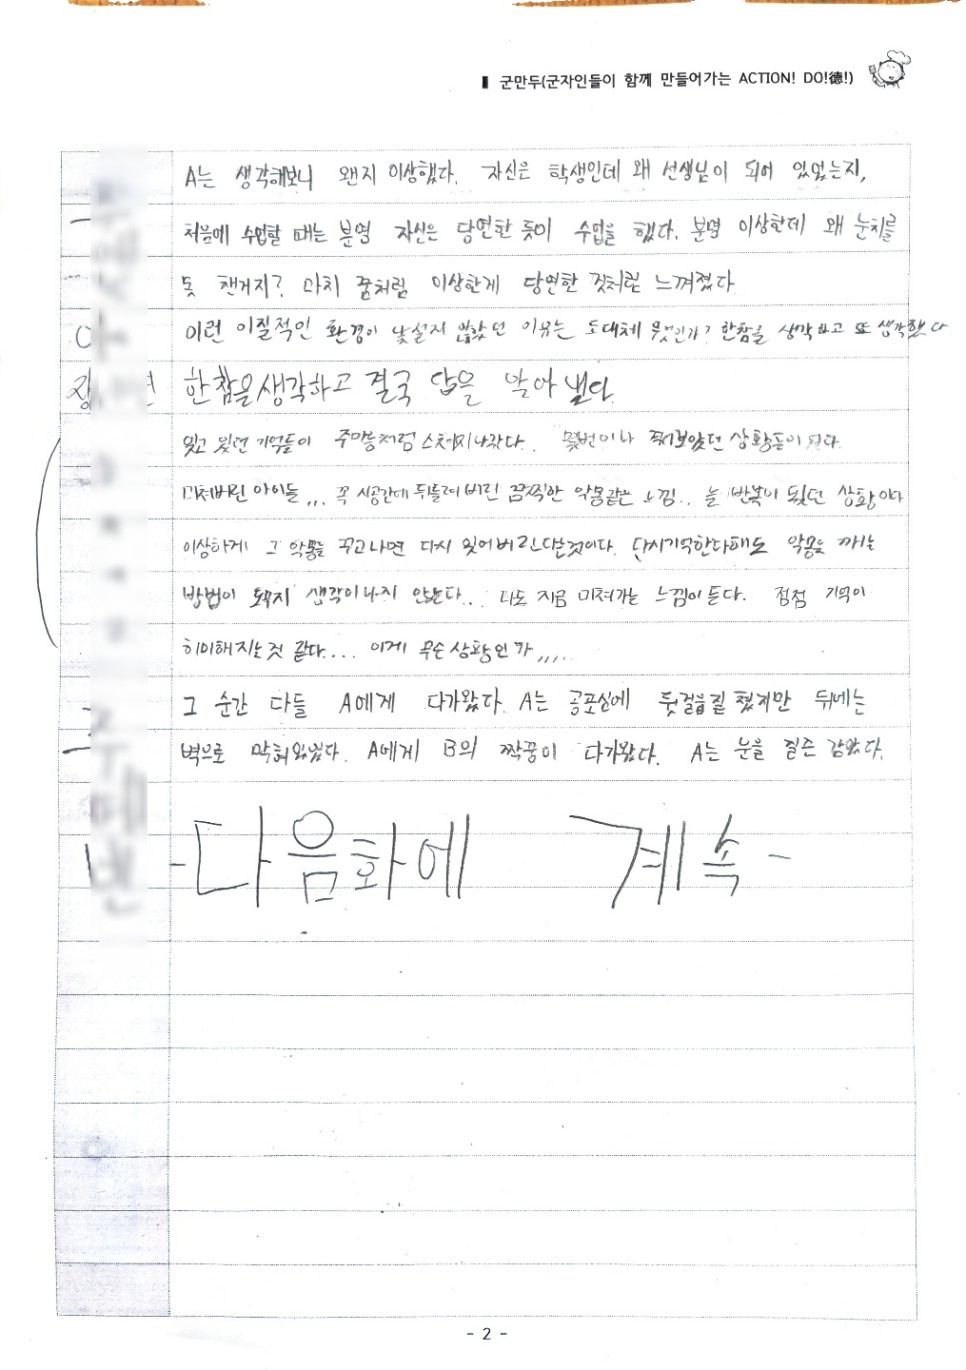 군만두(군자인들이 함께 만들어가는 ACTION! DO!德!)
A는 생각해보니 왠지 이상했다. 자신은 학생인데 왜 선생님이 되어 있었는지,
처음에 수업할 때는 분명 자신은 당연한 듯이 수업을 했다. 분명 이상한데 왜 눈치를
못 챈거지? 마치 꿈처럼 이상한게 당연한 것처럼 느껴졌다
이런 이질적인 환경이 낯설지 않았던 이유는 도대체 무엇인가? 한참을 생각하고 또 생각했다
한참을 생각하고 결국 답을 알아 냈다.
잊고 있던 기억들이 주마등처럼 스쳐지나갔다.. 몇번이나 상황들이였다
미쳐버린 아이들,,, 꼭 시공간에 뒤틀려버린 끔찍한 악몽같은 느낌.. 늘 반복이 됬던 상황이다
이상하게 그 악몽을 꾸고나면 다시 잊어버린다는것이다. 단시기억한다해도 악몽을 깨는
방법이 도무지 생각이나지 않는다... 나도 지금 미쳐가는 느낌이 든다. 점점 기억이
희미해지는것 같다.... 이게 무슨 상황인가,,,,,
그 순간 다들 A에게 다가왔다. A는 공포심에 뒷걸음질 쳤지만 뒤에는
벽으로 막혀있었다. A에게 B의 짝꿍이 다가왔다. A는 눈을 질끈 감았다.
-다음화에 계속-
- 2 -